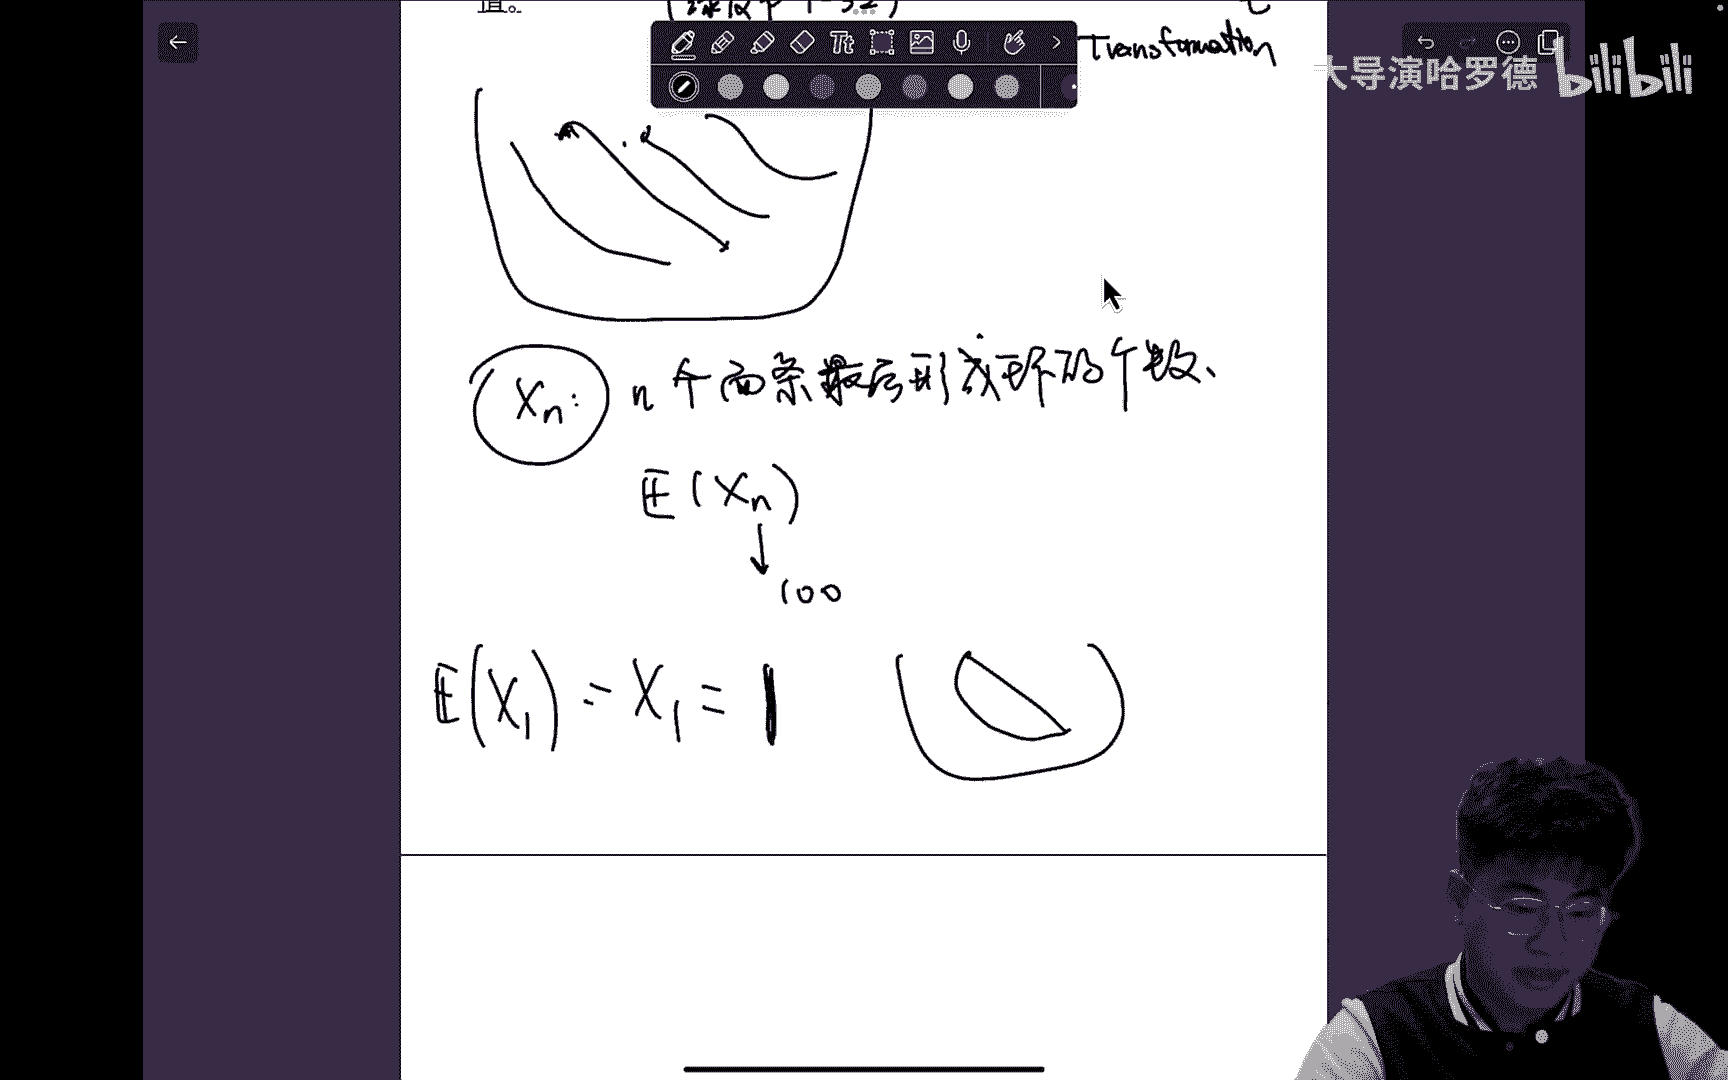 值。
Transformation
大导演哈罗德 bilibili
Tt
Xn: n个面条最后形成环的个数、
E(Xn)
↓
100
E(X1) = X1 = 1